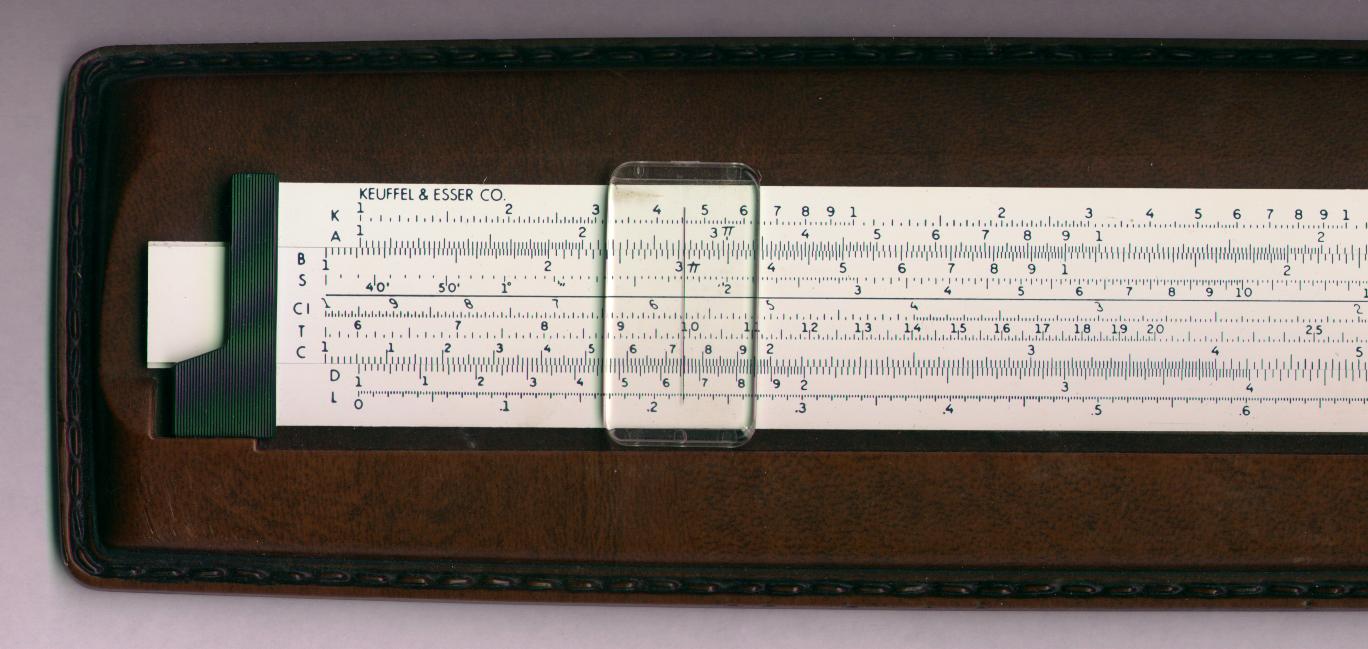 KEUFFEL & ESSER CO.
K 1 2 3 4 5 6 7 8 9 1 2 3 4 5 6 7 8 9 1
A 1 2 3 π 4 5 6 7 8 9 1 2
B 1 2 3 π 4 5 6 7 8 9 1 2
S 40' 50' 1° 2 3 4 5 6 7 8 9 10
CI 1 9 8 7 6 5 4 3 2
T 6 7 8 9 10 11 12 13 14 15 16 17 18 19 20 25
C 1 1 2 3 4 5 6 7 8 9 2 3 4 5
D 1 1 2 3 4 5 6 7 8 9 2 3 4
L 0 .1 .2 .3 .4 .5 .6